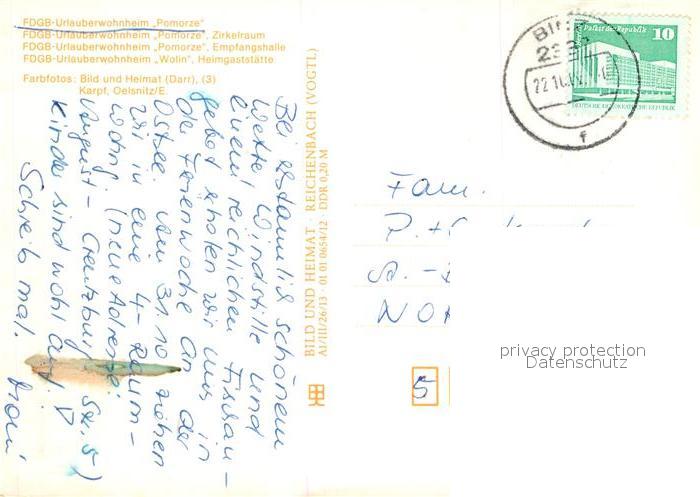 FDGB-Urlauberwohnheim „Pomorze"
FDGB-Urlauberwohnheim „Pomorze", Zirkelraum
FDGB-Urlauberwohnheim „Pomorze", Empfangshalle
FDGB-Urlauberwohnheim „Wolin", Heimgaststätte
Farbfotos: Bild und Heimat (Darr), (3)
Karpf, Oelsnitz/E.
Bei schönem
Wetter Windstille und
einem reichlichen Fischan-
gebot erholen wir uns in
der Ferienwoche an der
Ostsee. Am 31.10 ziehen
wir in eine 4-Raum-
wohng. (neue Adresse:
August-Creutzburg Str. 5)
Kinder sind wohl auf!
Schreib mal.
BILD UND HEIMAT · REICHENBACH (VOGTL)
A1/III/26/13 · 01 01 0654/12 · DDR 0,20 M
Palast der Republik
10
DEUTSCHE DEMOKRATISCHE REPUBLIK
22.10.
f
Fam.
5
privacy protection
Datenschutz